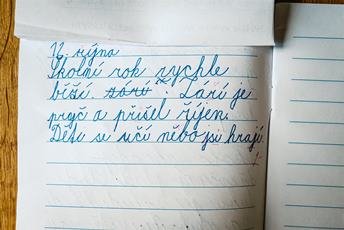 12. října
Školní rok rychle
běží. Září je
pryč a přišel říjen.
Děti se učí nebo si hrají.